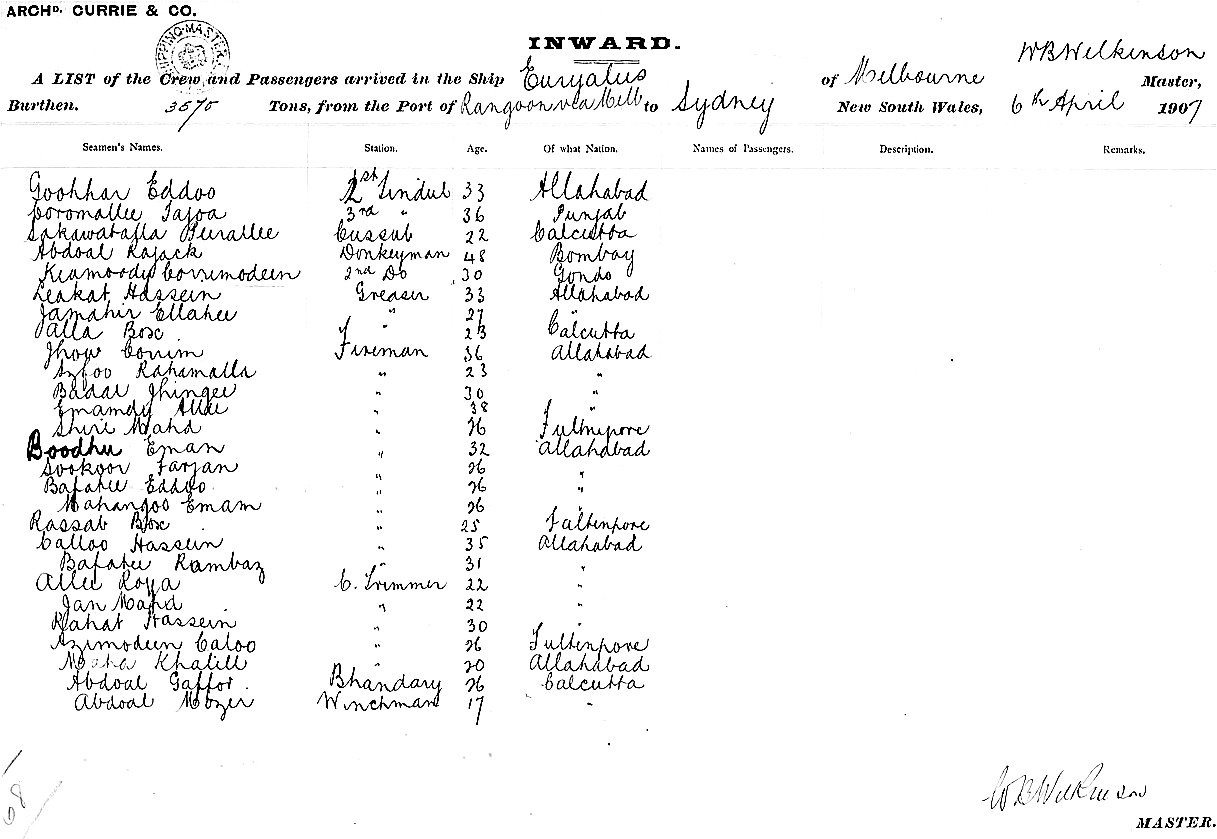 ARCHD. CURRIE & CO.
SHIPPING MASTER
INWARD.
WBWilkinson
A LIST of the Crew and Passengers arrived in the Ship Euryalus of Melbourne Master,
Burthen. 3570 Tons, from the Port of Rangoon via Melb to Sydney New South Wales, 6th April 1907
Seamen's Names. Station. Age. Of what Nation. Names of Passengers. Description. Remarks.
Goohhar Eddoo 2nd Tindul 33 Allahabad
3rd " 36 Punjab
Cussub 22 Calcutta
Abdoal Rajack Donkeyman 48 Bombay
Kiamoody Corrimodeen 2nd Do 30 Gondo
Leakat Hassein Greaser 33 Allahabad
Jamahir Ellahee " 27 "
Jalla Box " 23 Calcutta
Corrim Fireman 36 Allahabad
Rahamalla " 23 "
Badal Jhingee " 30 "
Emamdy Allie " 38 "
Shiri Mahd " 26 Fultnipore
Boodhu Eman " 32 Allahabad
Sookoor Farjan " 26 "
Bafatee Eddoo " 26 "
Mahangoo Emam " 26
Rassab Box " 25 Fultenpore
Calloo Hassein " 35 Allahabad
Bafatee Rambaz " 31 "
Allee Roya C. Trimmer 22 "
Jan Mahd " 22 "
Rahat Hassein " 30 "
Azimodeen Caloo " 26 Fultenpore
Khalill " 20 Allahabad
Abdoal Gaffor Bhandary 26 Calcutta
Abdoal Mozer Winchman 17 "
68
WBWilkinson
MASTER.